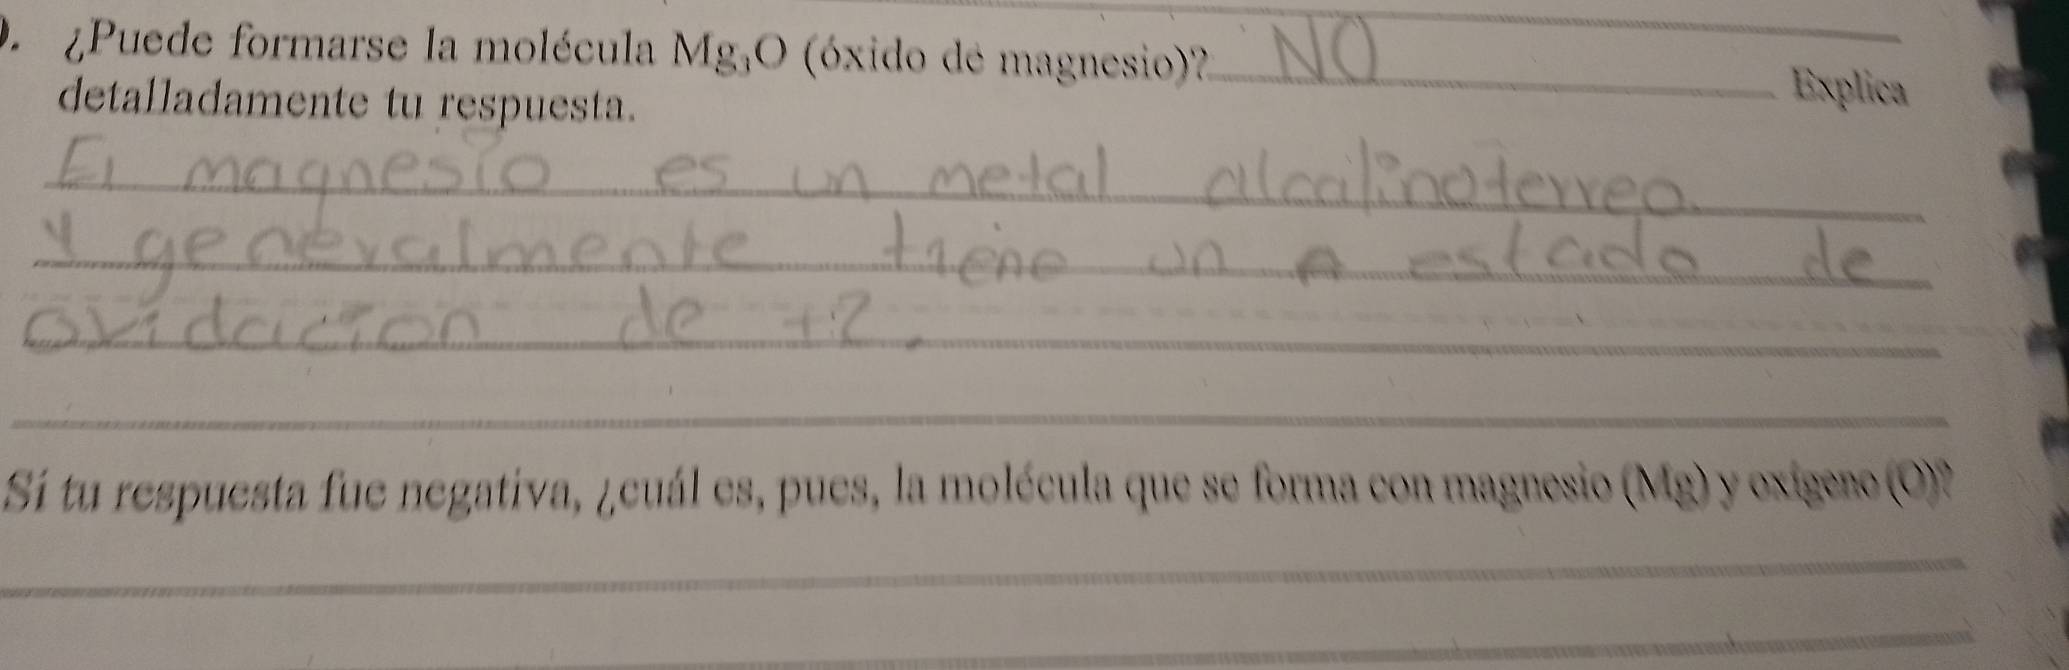 . ¿Puede formarse la molécula Mg₃O (óxido de magnesio)? NO Explica
detalladamente tu respuesta.
El magnesio es un metal alcalinoterreo
y generalmente tiene un estado de
oxidación de +2.
Si tu respuesta fue negativa, ¿cuál es, pues, la molécula que se forma con magnesio (Mg) y oxígeno (O)?